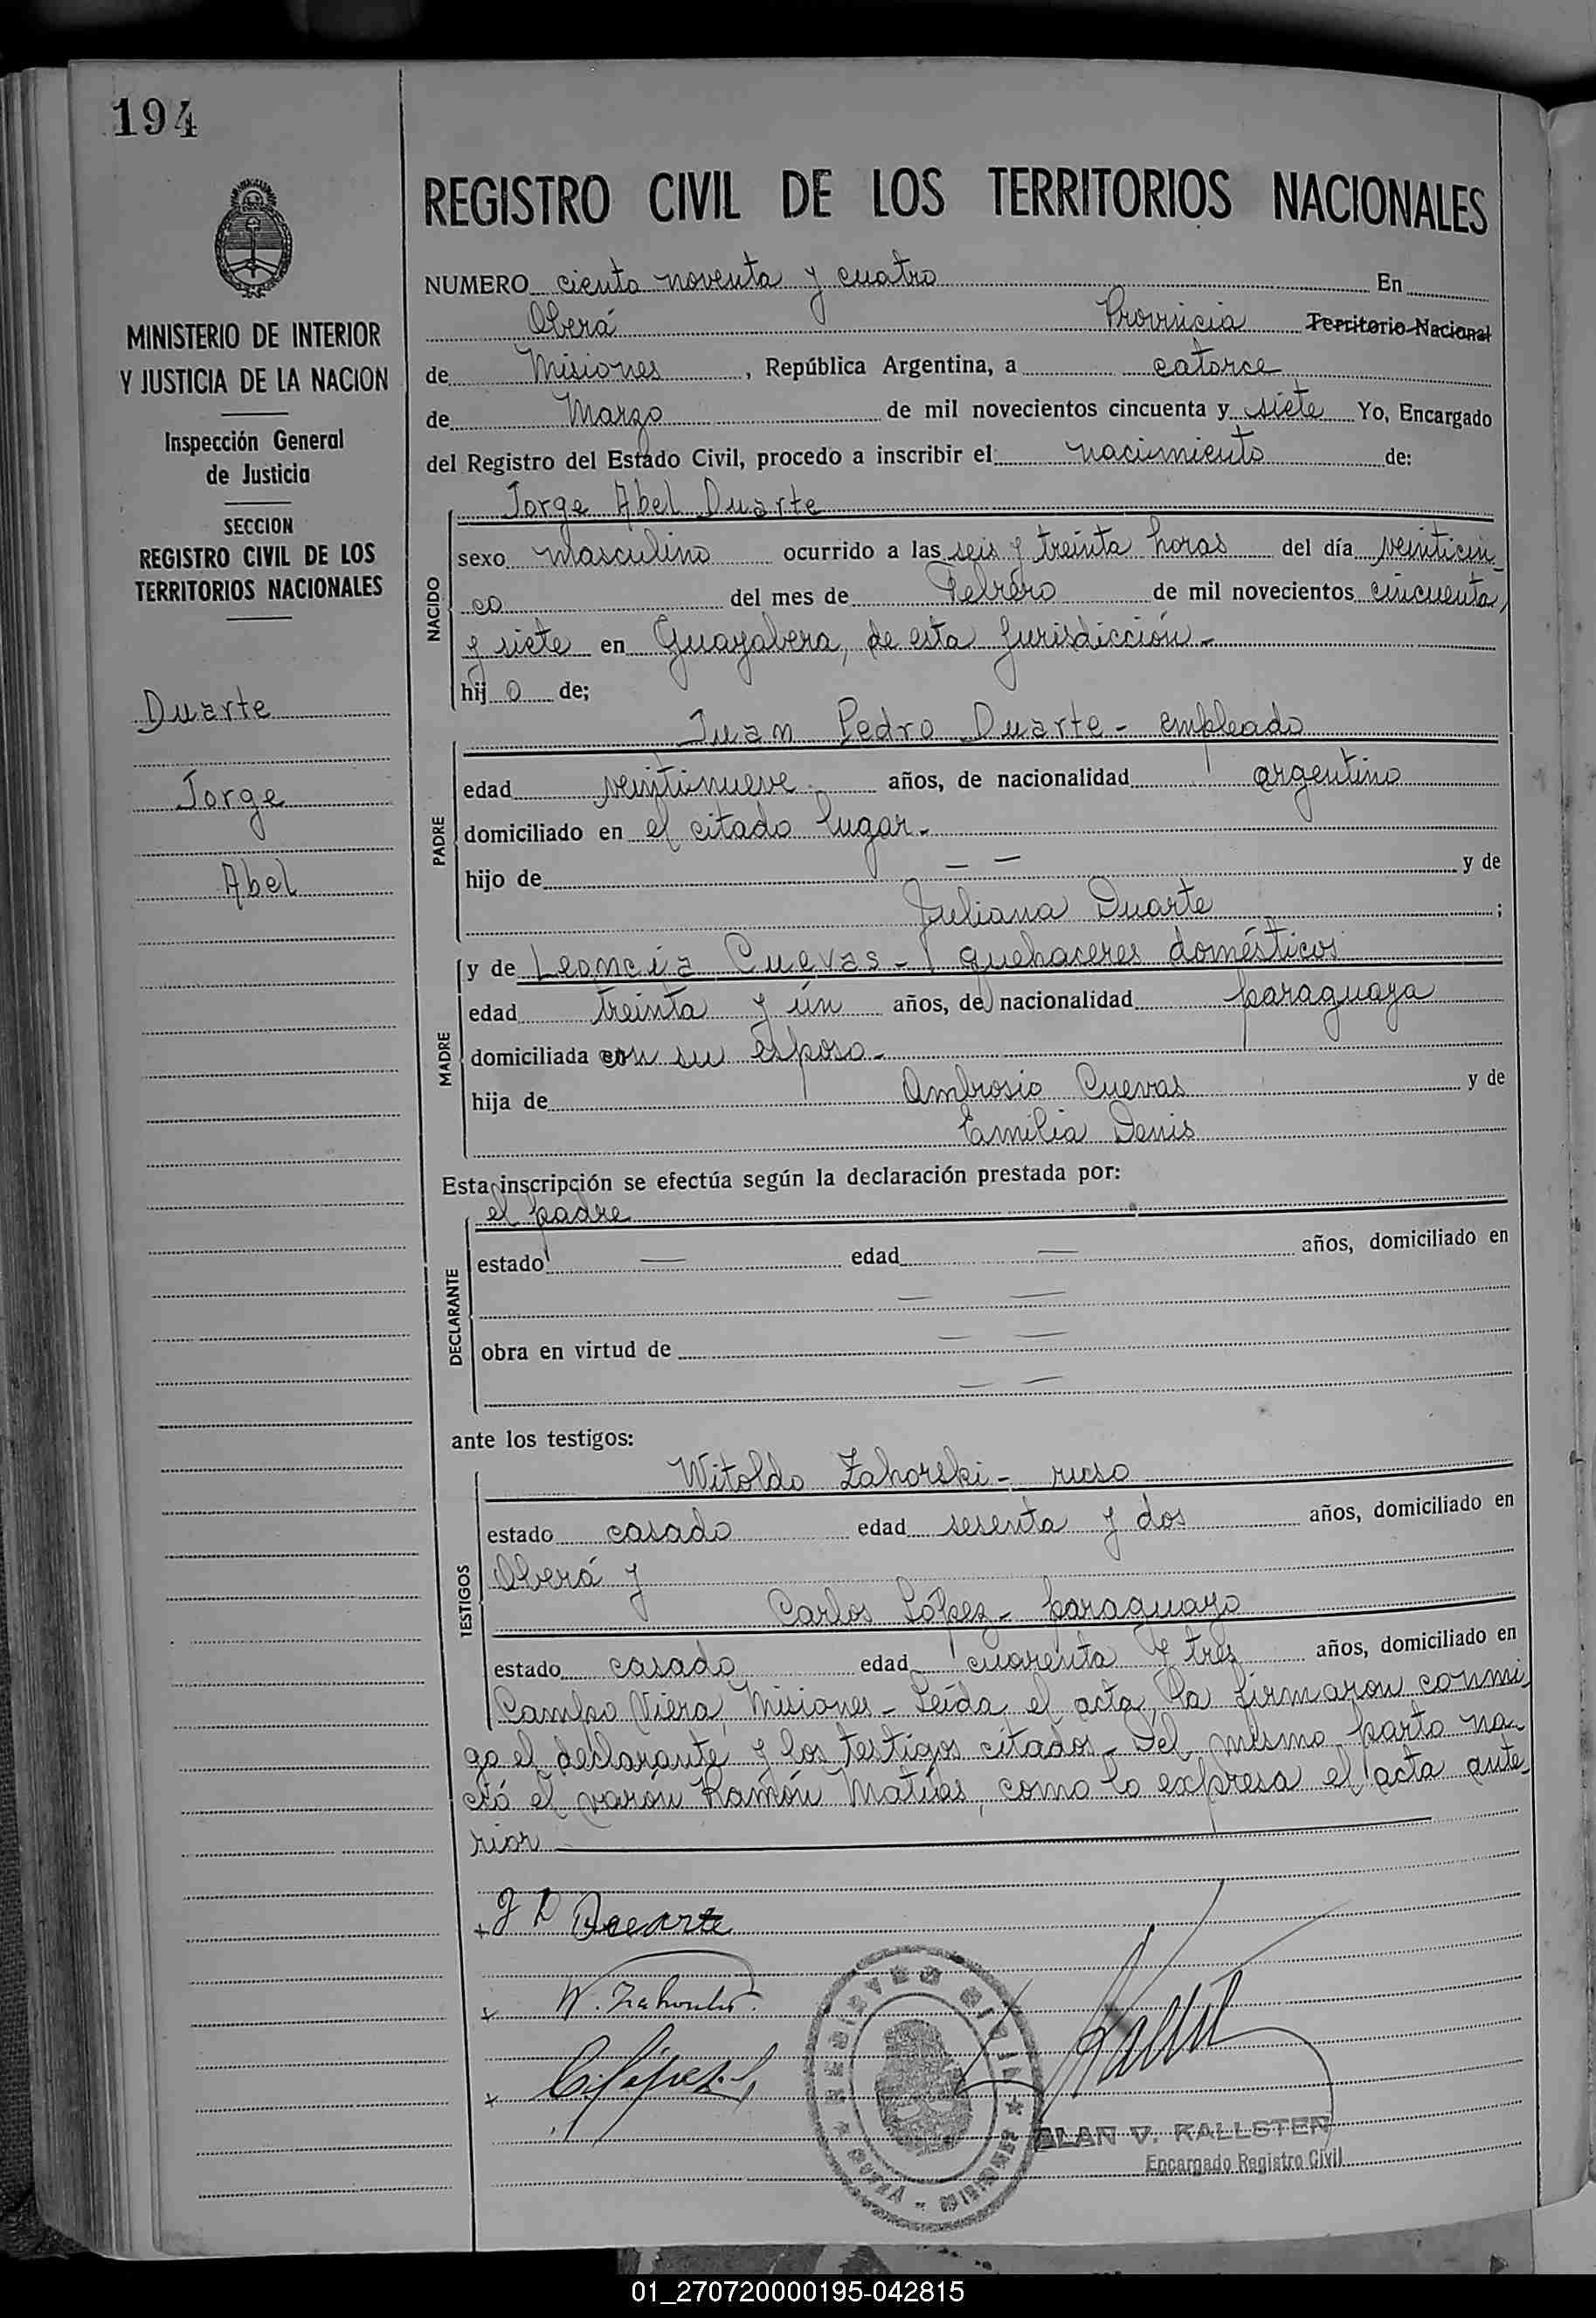 194
MINISTERIO DE INTERIOR
Y JUSTICIA DE LA NACION
Inspección General
de Justicia
SECCION
REGISTRO CIVIL DE LOS
TERRITORIOS NACIONALES
Duarte
Jorge
Abel
REGISTRO CIVIL DE LOS TERRITORIOS NACIONALES
NUMERO ciento noventa y cuatro En
Oberá Provincia Territorio Nacional
de Misiones, República Argentina, a catorce
de Marzo de mil novecientos cincuenta y siete Yo, Encargado
del Registro del Estado Civil, procedo a inscribir el nacimiento de:
Jorge Abel Duarte
NACIDO
sexo masculino ocurrido a las seis y treinta horas del día veinticin-
co del mes de Febrero de mil novecientos cincuenta
y siete en Guayabera, de esta Jurisdicción-
hijo de;
Juan Pedro Duarte - empleado
PADRE
edad veintinueve años, de nacionalidad argentino
domiciliado en el citado lugar-
hijo de — — y de
Juliana Duarte;
y de Leoncia Cuevas - quehaceres domésticos
MADRE
edad treinta y ún años, de nacionalidad paraguaya
domiciliada con su esposo-
hija de Ambrosio Cuevas y de
Emilia Denis
Esta inscripción se efectúa según la declaración prestada por:
el padre
DECLARANTE
estado — edad — años, domiciliado en
— —
obra en virtud de — —
— —
ante los testigos:
Witoldo Zahorski - ruso
TESTIGOS
estado casado edad sesenta y dos años, domiciliado en
Oberá y
Carlos López - paraguayo
estado casado edad cuarenta y tres años, domiciliado en
Campo Viera, Misiones - Leída el acta, la firmaron conmi
go el declarante y los testigos citados - Del mismo parto na-
ció el varón Ramón Matías, como lo expresa el acta ante-
rior
J P Duarte
W. Zahorski
C. López
REGISTRO CIVIL
OBERÁ - MISIONES
ALAN V. KALLSTEN
Encargado Registro Civil
01_270720000195-042815